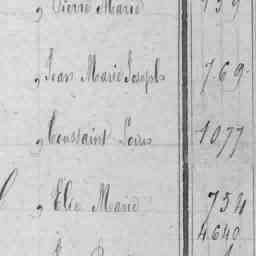 , Pierre Marie 759
, Jean Marie Joseph 769.
, Toussaint Louis 1077
, Elie Marie 754
4640